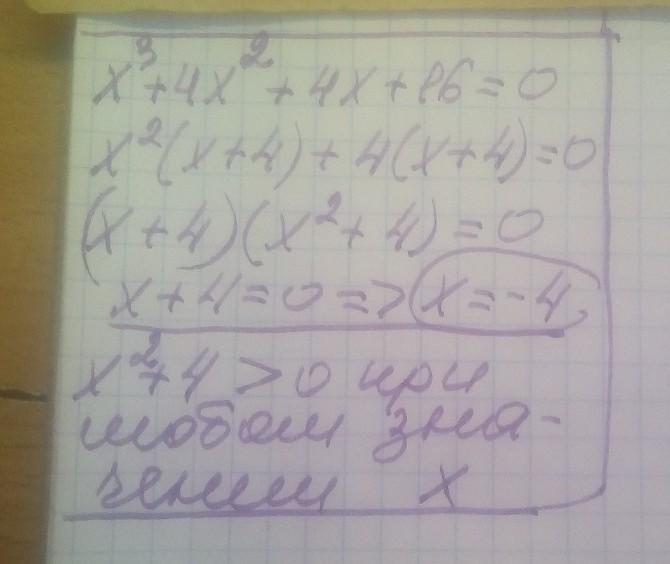 x³+4x²+4x+16=0
x²(x+4)+4(x+4)=0
(x+4)(x²+4)=0
x+4=0=>x=-4
x²+4>0 при
любом зна-
чении x